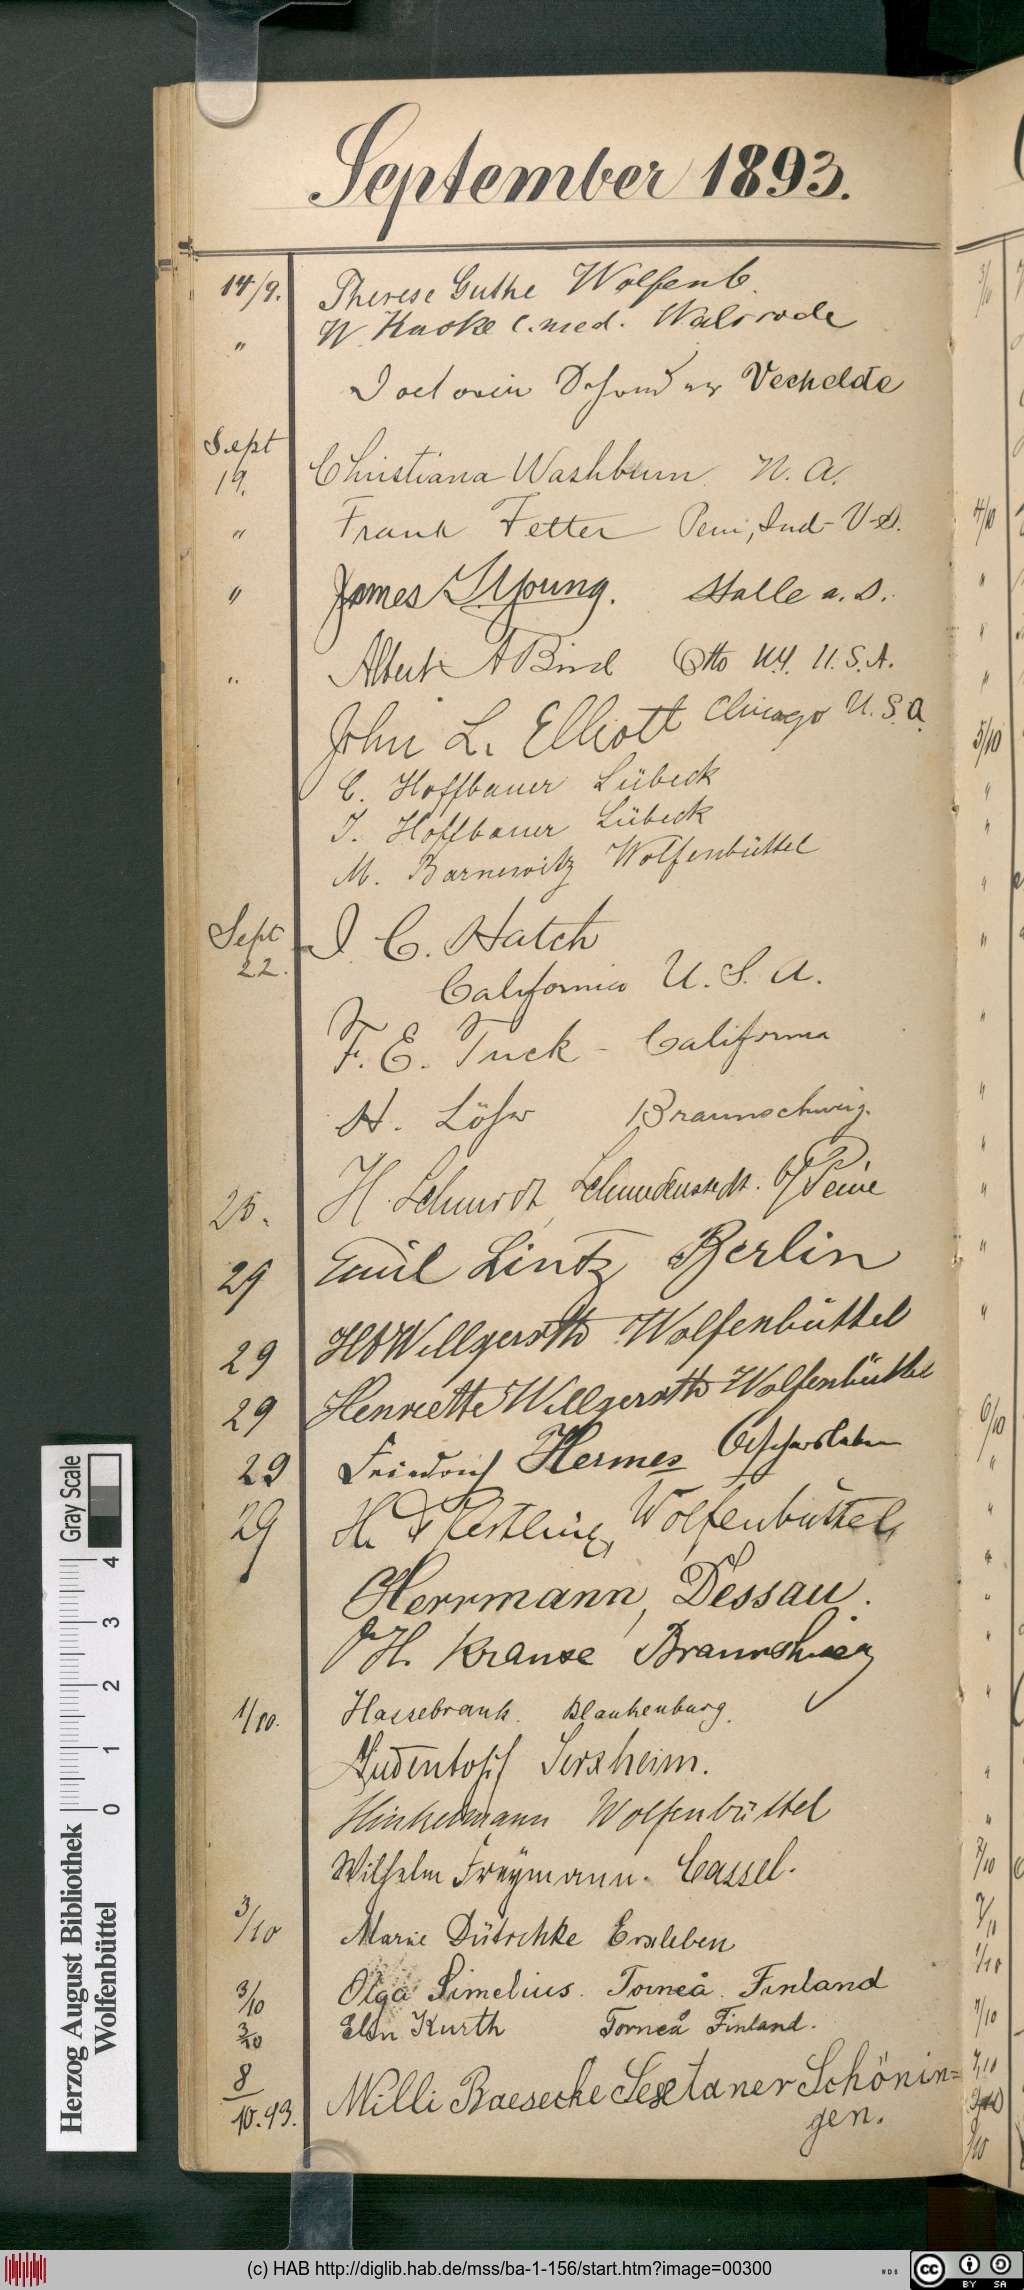 September 1893.
14/9. Therese Guthe Wolfenb.
" W. Haske c. med. Walsrode
Vechelde
Sept
19. Christiana Washburn. N. A.
" Frank Fetter Peru, Ind - U-S.
" James T. Young. Halle a. S.
" Albert A Bird Otto N.Y. U.S.A.
John L. Elliott Chicago U.S.A.
C. Hoffbauer Lübeck
J. Hoffbauer Lübeck
M. Barnewitz Wolfenbüttel
Sept
22. J. C. Hatch
California U. S. A.
F. E. Tuck - California
H. Löhr Braunschweig.
25. H. Schmidt, Schmedenstedt. b/ Peine
29 Emil Lintz Berlin
29 Willgeroth Wolfenbüttel
29 Henriette Willgeroth Wolfenbüttel
29 Friedrich Hermes Oschersleben
29 H. Wolfenbüttel,
Herrmann, Dessau.
H. Krause Braunschweig
1/10. Hassebrauk. Blankenburg.
Jerxheim.
Hinkelmann Wolfenbüttel
Wilhelm Freymann. Cassel.
3/10 Marie Dütschke Erxleben
3/10 Olga Simelius. Torneå. Finland
3/10 Elin Kurth Torneå Finland.
8/10.93. Willi Baesecke Sextaner Schönin=
gen.
3/11
4/10
"
"
"
5/10
"
"
"
"
"
"
"
"
"
"
6/10
"
"
"
"
"
"
"
7/10
1/10
7/10
7/10
Herzog August Bibliothek
Wolfenbüttel
0 1 2 3 4
Gray Scale
(c) HAB http://diglib.hab.de/mss/ba-1-156/start.htm?image=00300
WDB
cc BY SA